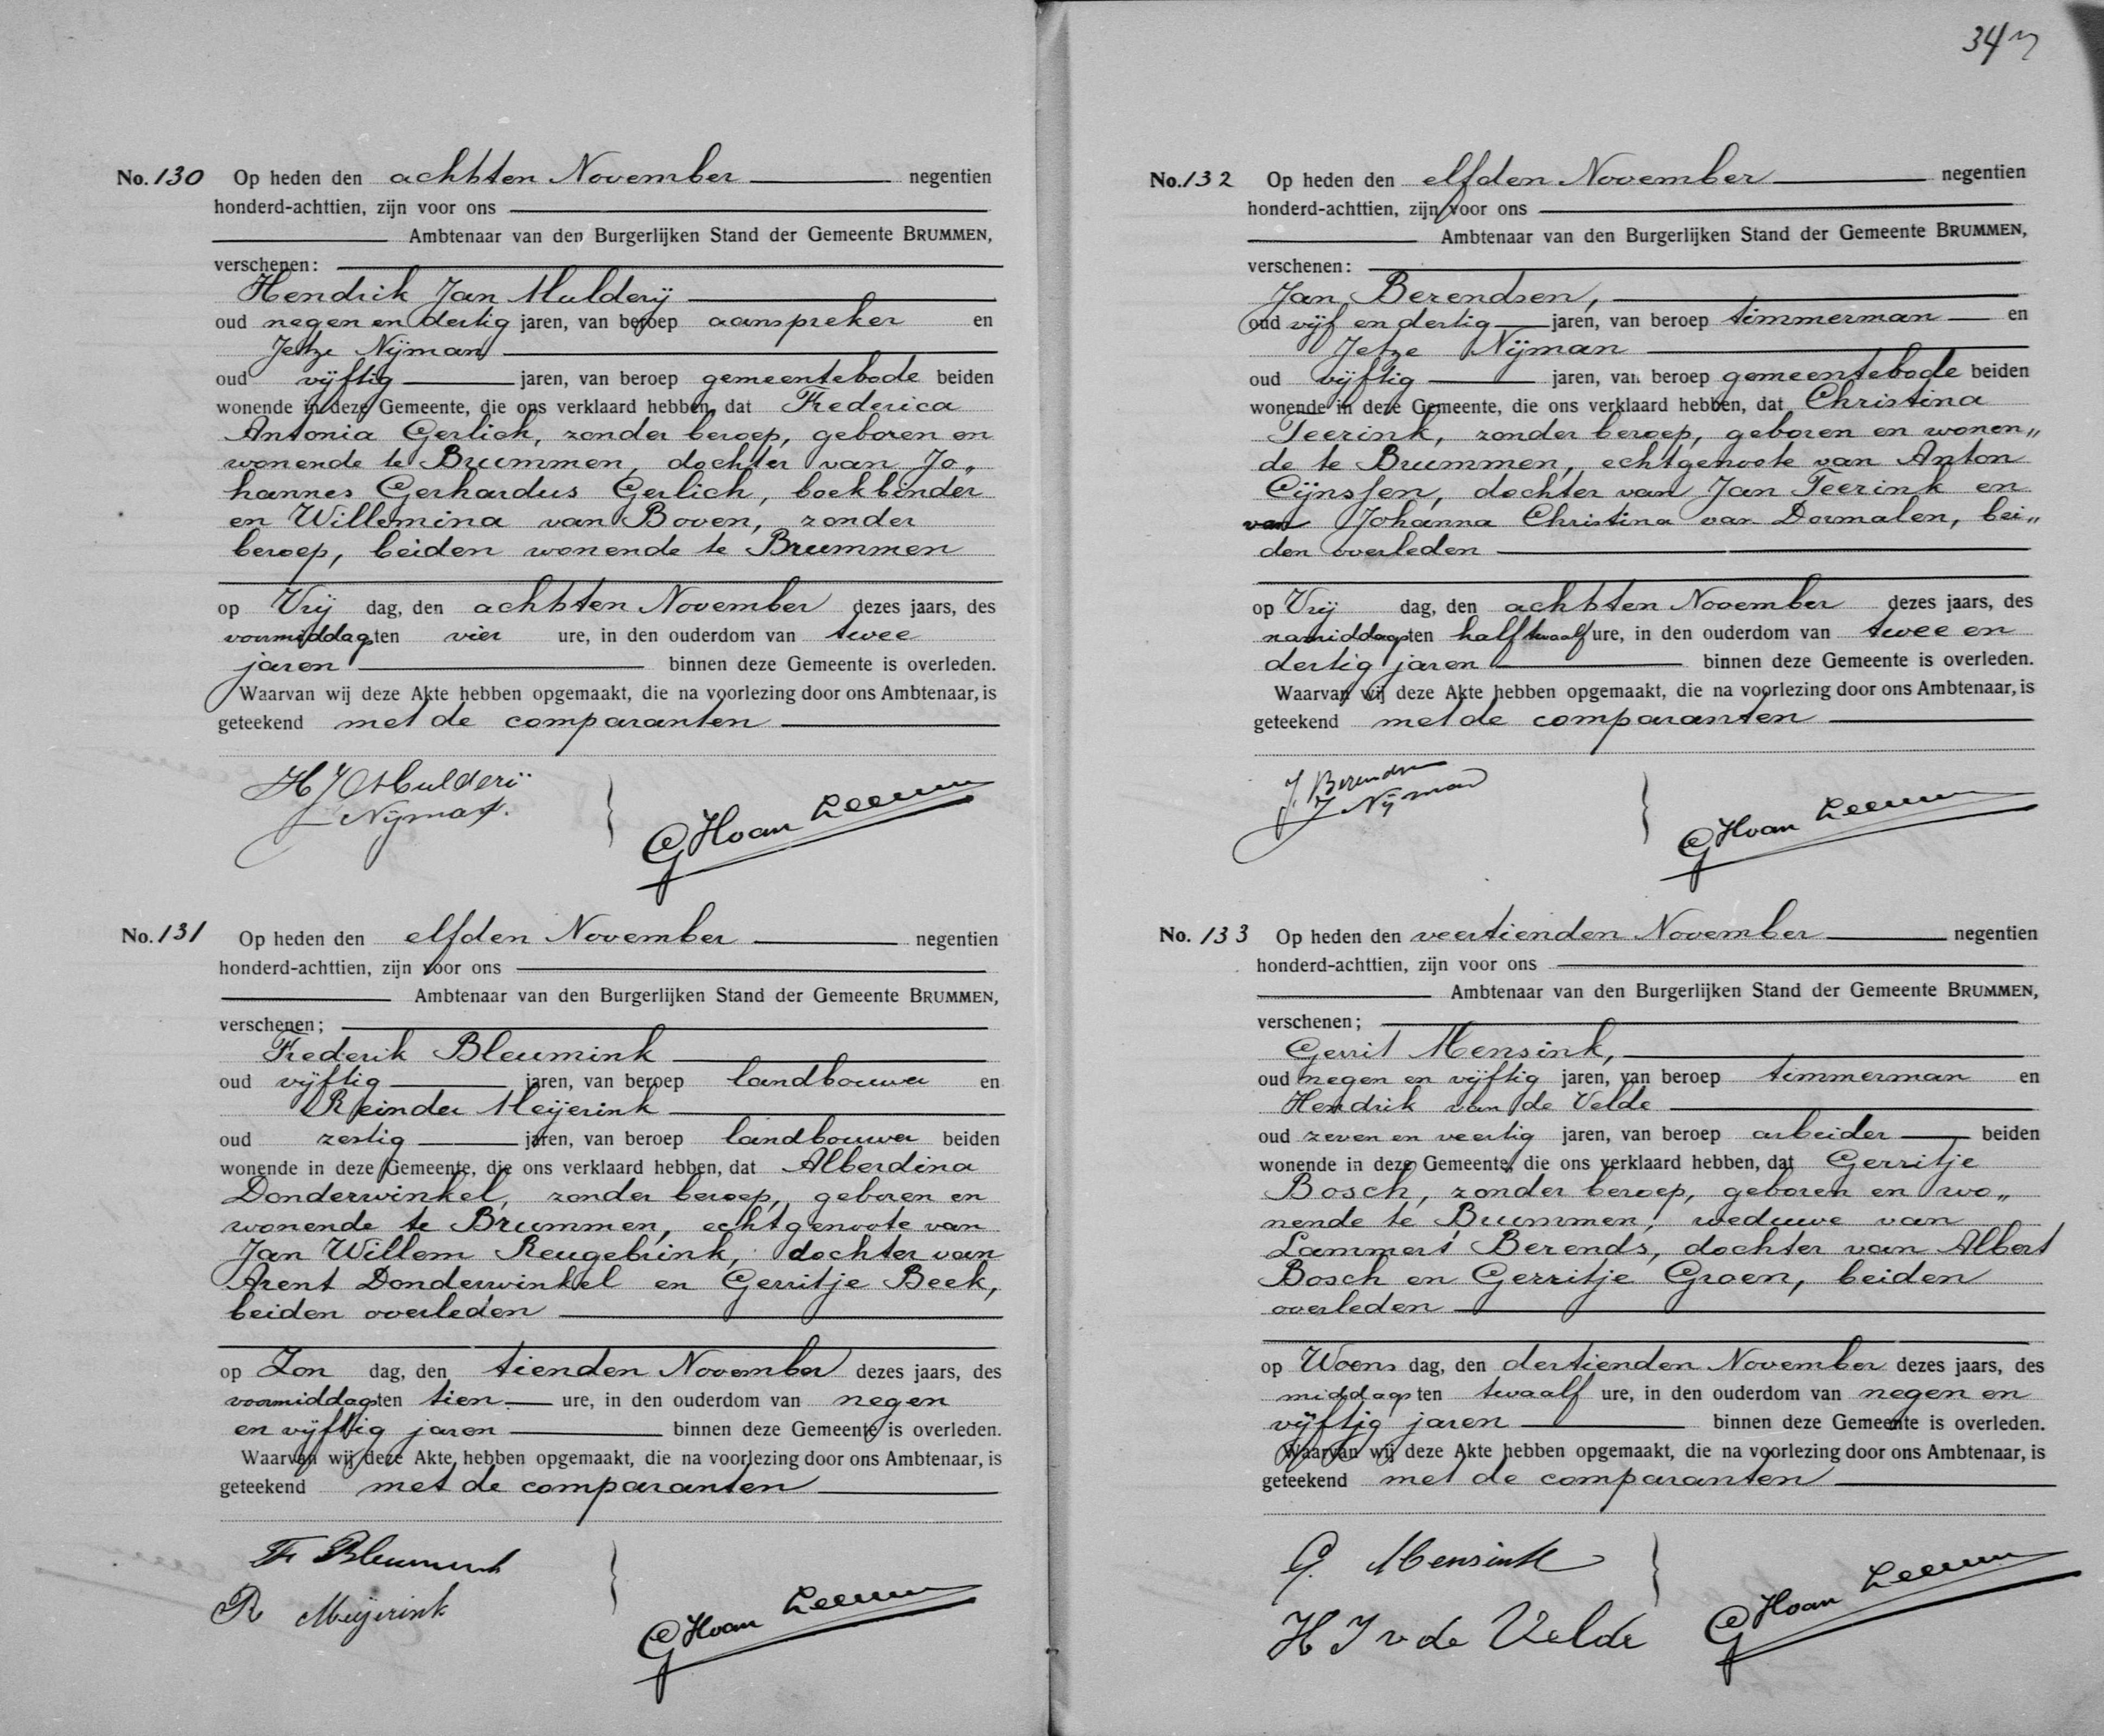 No. 130 Op heden den achtsten November negentien
honderd-achttien, zijn voor ons
Ambtenaar van den Burgerlijken Stand der Gemeente BRUMMEN,
verschenen:
Hendrik Jan Mulderij
oud negen en dertig jaren, van beroep aanspreker en
Jetze Nijman
oud vijftig jaren, van beroep gemeentebode beiden
wonende in deze Gemeente, die ons verklaard hebben, dat Frederica
Antonia Gerlich, zonder beroep, geboren en
wonende te Brummen, dochter van Jo„
hannes Gerhardus Gerlich, boekbinder
en Willemina van Boven, zonder
beroep, beiden wonende te Brummen
op Vrij dag, den achtsten November dezes jaars, des
voormiddags ten vier ure, in den ouderdom van twee
jaren binnen deze Gemeente is overleden.
Waarvan wij deze Akte hebben opgemaakt, die na voorlezing door ons Ambtenaar, is
geteekend met de comparanten
HJ Mulderij
J Nijman.
GHvan Leeuwen
No. 131 Op heden den elfden November negentien
honderd-achttien, zijn voor ons
Ambtenaar van den Burgerlijken Stand der Gemeente BRUMMEN,
verschenen;
Frederik Bleumink
oud vijftig jaren, van beroep landbouwer en
Reinder Meijerink
oud zestig jaren, van beroep landbouwer beiden
wonende in deze Gemeente, die ons verklaard hebben, dat Alberdina
Donderwinkel, zonder beroep, geboren en
wonende te Brummen, echtgenoote van
Jan Willem Reugebrink, dochter van
Arent Donderwinkel en Gerritje Beek,
beiden overleden
op Zon dag, den tienden November dezes jaars, des
voormiddags ten tien ure, in den ouderdom van negen
en vijftig jaren binnen deze Gemeente is overleden.
Waarvan wij deze Akte hebben opgemaakt, die na voorlezing door ons Ambtenaar, is
geteekend met de comparanten
F Bleumink
R Meijerink
GHvan Leeuwen
No. 132 Op heden den elfden November negentien
honderd-achttien, zijn voor ons
Ambtenaar van den Burgerlijken Stand der Gemeente BRUMMEN,
verschenen:
Jan Berendsen,
oud vijf en dertig jaren, van beroep timmerman en
Jetze Nijman
oud vijftig jaren, van beroep gemeentebode beiden
wonende in deze Gemeente, die ons verklaard hebben, dat Christina
Teerink, zonder beroep, geboren en wonen„
de te Brummen, echtgenoote van Anton
Cijnssen, dochter van Jan Teerink en
van Johanna Christina van Dormalen, bei„
den overleden
op Vrij dag, den achtsten November dezes jaars, des
namiddags ten half twaalf ure, in den ouderdom van twee en
dertig jaren binnen deze Gemeente is overleden.
Waarvan wij deze Akte hebben opgemaakt, die na voorlezing door ons Ambtenaar, is
geteekend met de comparanten
J. Berendsen
J Nijman
GHvan Leeuwen
No. 133 Op heden den veertienden November negentien
honderd-achttien, zijn voor ons
Ambtenaar van den Burgerlijken Stand der Gemeente BRUMMEN,
verschenen;
Gerrit Mensink,
oud negen en vijftig jaren, van beroep timmerman en
Hendrik van de Velde
oud zeven en veertig jaren, van beroep arbeider beiden
wonende in deze Gemeente, die ons verklaard hebben, dat Gerritje
Bosch, zonder beroep, geboren en wo„
nende te Brummen, weduwe van
Lammert Berends, dochter van Albert
Bosch en Gerritje Groen, beiden
overleden
op Woens dag, den dertienden November dezes jaars, des
middags ten twaalf ure, in den ouderdom van negen en
vijftig jaren binnen deze Gemeente is overleden.
Waarvan wij deze Akte hebben opgemaakt, die na voorlezing door ons Ambtenaar, is
geteekend met de comparanten
G. Mensink
H J v de Velde
GHvan Leeuwen